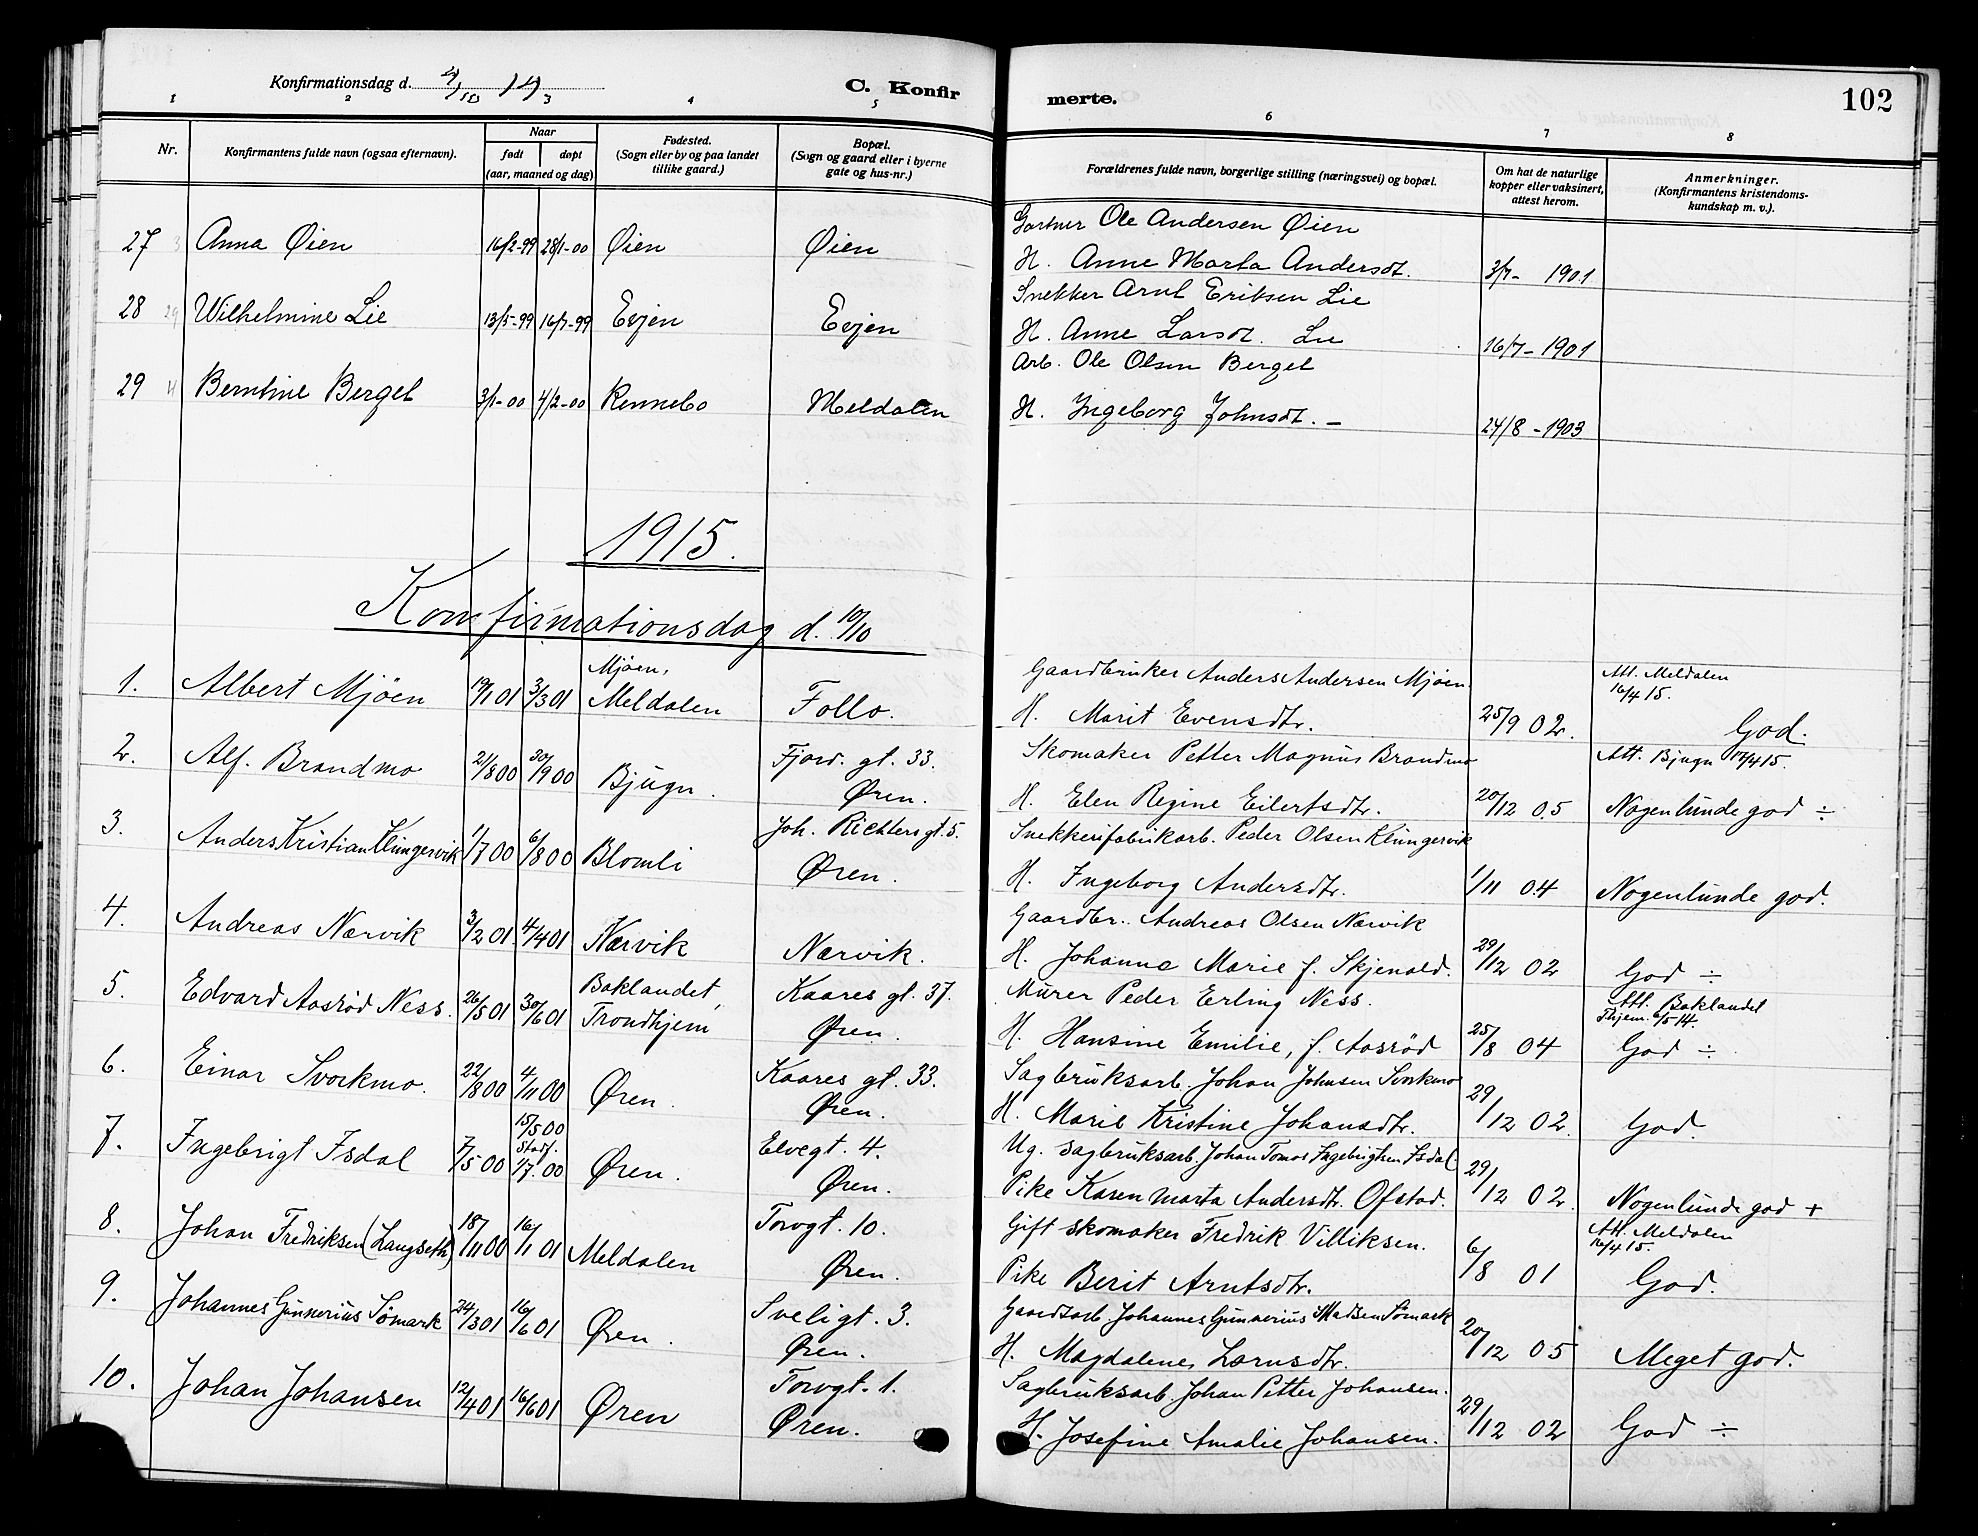 Konfirmationsdag d. 4/10 14
C. Konfirmerte.
102
1 2 3 4 5 6 7 8
Nr.
Konfirmantens fulde navn (ogsaa efternavn).
Naar
født døpt
(aar, maaned og dag)
Fødested.
(Sogn eller by og paa landet
tillike gaard.)
Bopæl.
(Sogn og gaard eller i byerne
gate og hus-nr.)
Forældrenes fulde navn, borgerlige stilling (næringsvei) og bopæl.
Om hat de naturlige
kopper eller vaksinert,
attest herom.
Anmerkninger.
(Konfirmantens kristendoms-
kundskap m. v.).
Gartner Ole Andersen Øien
27 Anna Øien 16/2-99 28/1-00 Øien Øien H. Anne Marta Andersdt. 3/7- 1901
Snekker Arnt Eriksen Lie
28 Wilhelmine Lie 13/5-99 16/7-99 Evjen Evjen H. Anne Larsdt. Lie 16/7-1901
Arb. Ole Olsen Berget
29 Berntine Berget 3/1-00 4/2-00 Rennebo Meldalen H. Ingeborg Johnsdt. - 24/8-1903
1915.
Konfirmationsdag d. 10/10
Mjøen, Gaardbruker Anders Andersen Mjøen Att. Meldalen 16/4 15.
1. Albert Mjöen 19/1 01 3/3 01 Meldalen Follo. H. Marit Evensdtr. 25/9 02. God.
Fjord. gt. 33. Skomaker Petter Magnus Brandmo Att. Bjugn 17/4 15.
2. Alf. Brandmo 21/8 00 30/9 00 Bjugn. Øren. H. Elen Regine Eilertsdtr. 20/12 05 Nogenlunde god ÷
Joh. Richters gt. 5. Snekkerifabrikarb. Peder Olsen Klungervik
3. Anders Kristian Klungervik 1/7 00 6/8 00 Blomli Øren. H. Ingeborg Andersdtr. 1/11 04 Nogenlunde god.
Gaardbr. Andreas Olsen Nærvik
4. Andreas Nærvik 3/2 01 4/4 01 Nærvik Nærvik. H. Johanna Marie f. Skjenald. 29/12 02 God ÷
Baklandet, Kaares gt. 37. Murer Peder Erling Ness. Att. Baklandet
5. Edvard Aasrød Ness. 26/5 01 30/6 01 Trondhjem Øren. H. Hansine Emilie, f. Aasrød 25/8 04 Thjem. 6/5 14. God ÷
Kaares gt. 33. Sagbruksarb. Johan Johnsen Svorkmo
6. Einar Svorkmo. 22/8 00 4/11 00 Øren. Øren. H. Marie Kristine Johansdtr. 29/12 02. God.
15/5 00 Elvegt. 4. Ug. sagbruksarb. Johan Tomas Ingebrigtsen Isdal
7. Ingebrigt Isdal 7/5 00 Stadf. 1/7. 00 Øren. Øren. Pike Karen Marta Andersdt. Ofstad. 29/12 02 Nogenlunde god +
Torvgt. 10. Gift skomaker Fredrik Villiksen. Att. Meldalen 16/4 15.
8. Johan Fredriksen (Langseth) 18/11 00 16/1 01 Meldalen Øren. Pike Berit Arntsdtr. 6/8 01 God.
Sveligt. 3. Gaardsarb. Johannes Gunnerius Madsen Sømark
9. Johannes Gunnerius Sømark 24/3 01 16/6 01 Øren. Øren. H. Magdalenes Larsdtr. 20/12 05 Meget god.
Torvgt. 1. Sagbruksarb. Johan Petter Johansen.
10. Johan Johansen 12/4 01 16/6 01 Øren Øren. H. Josefine Amalie Johansen. 29/12 02 God ÷